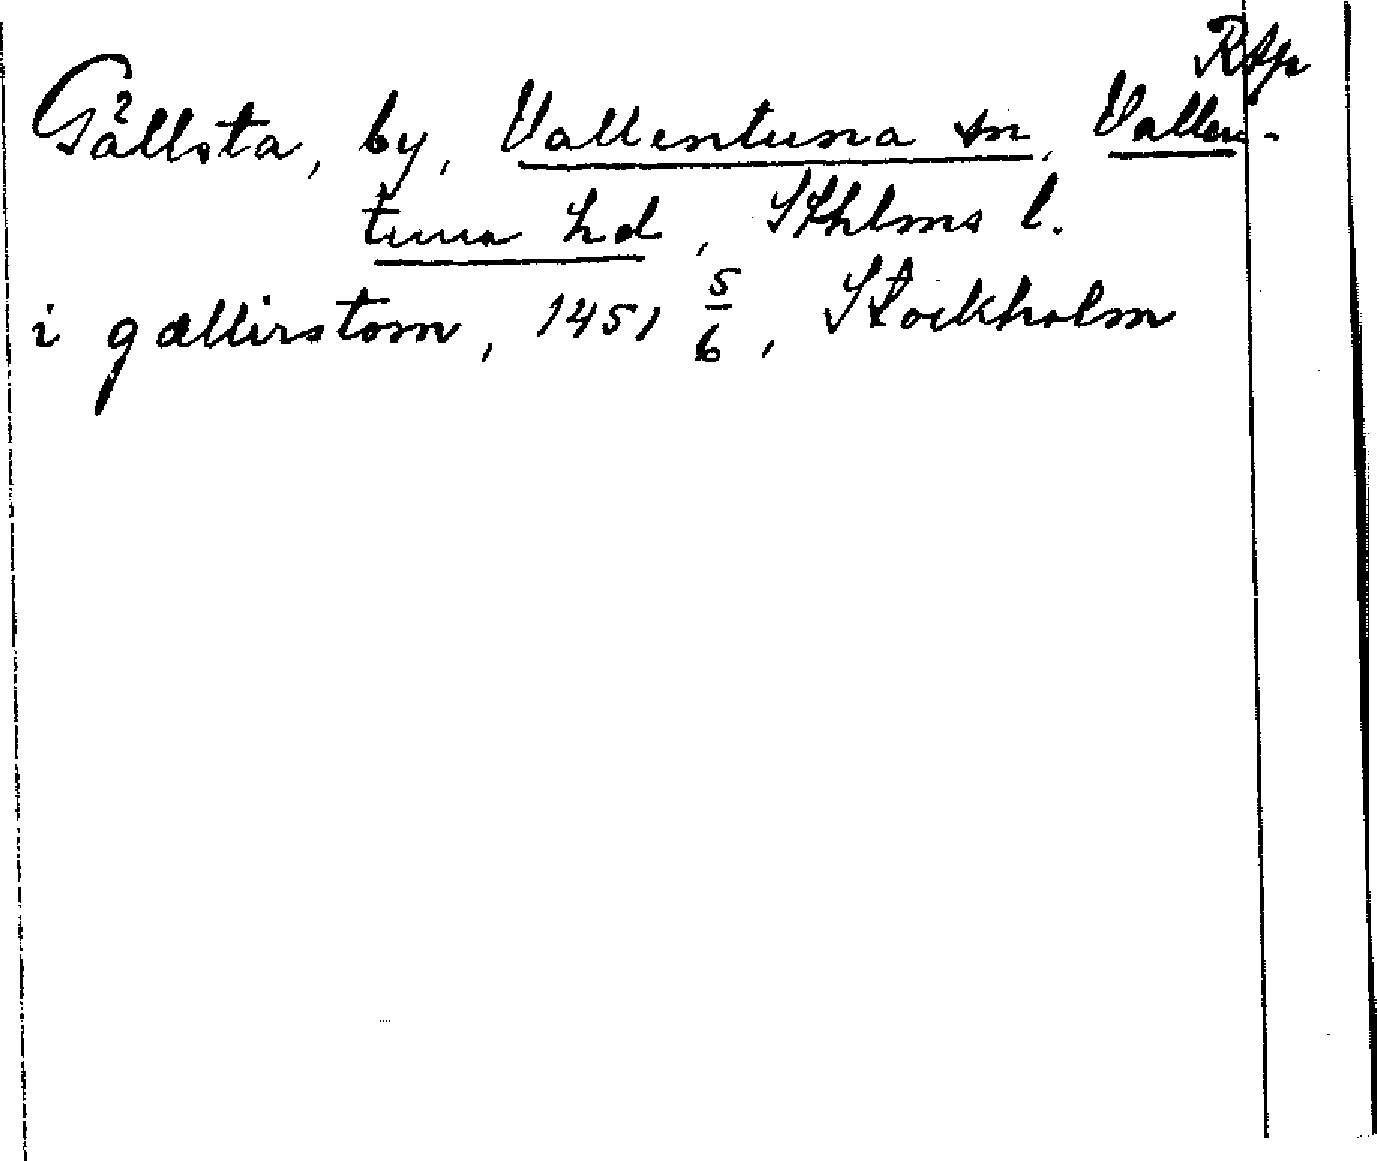 RAp
Gällsta, by, Vallentuna sn, Vallen-
tuna hd, Sthlms l.
i gællirstom, 1451 5/6, Stockholm